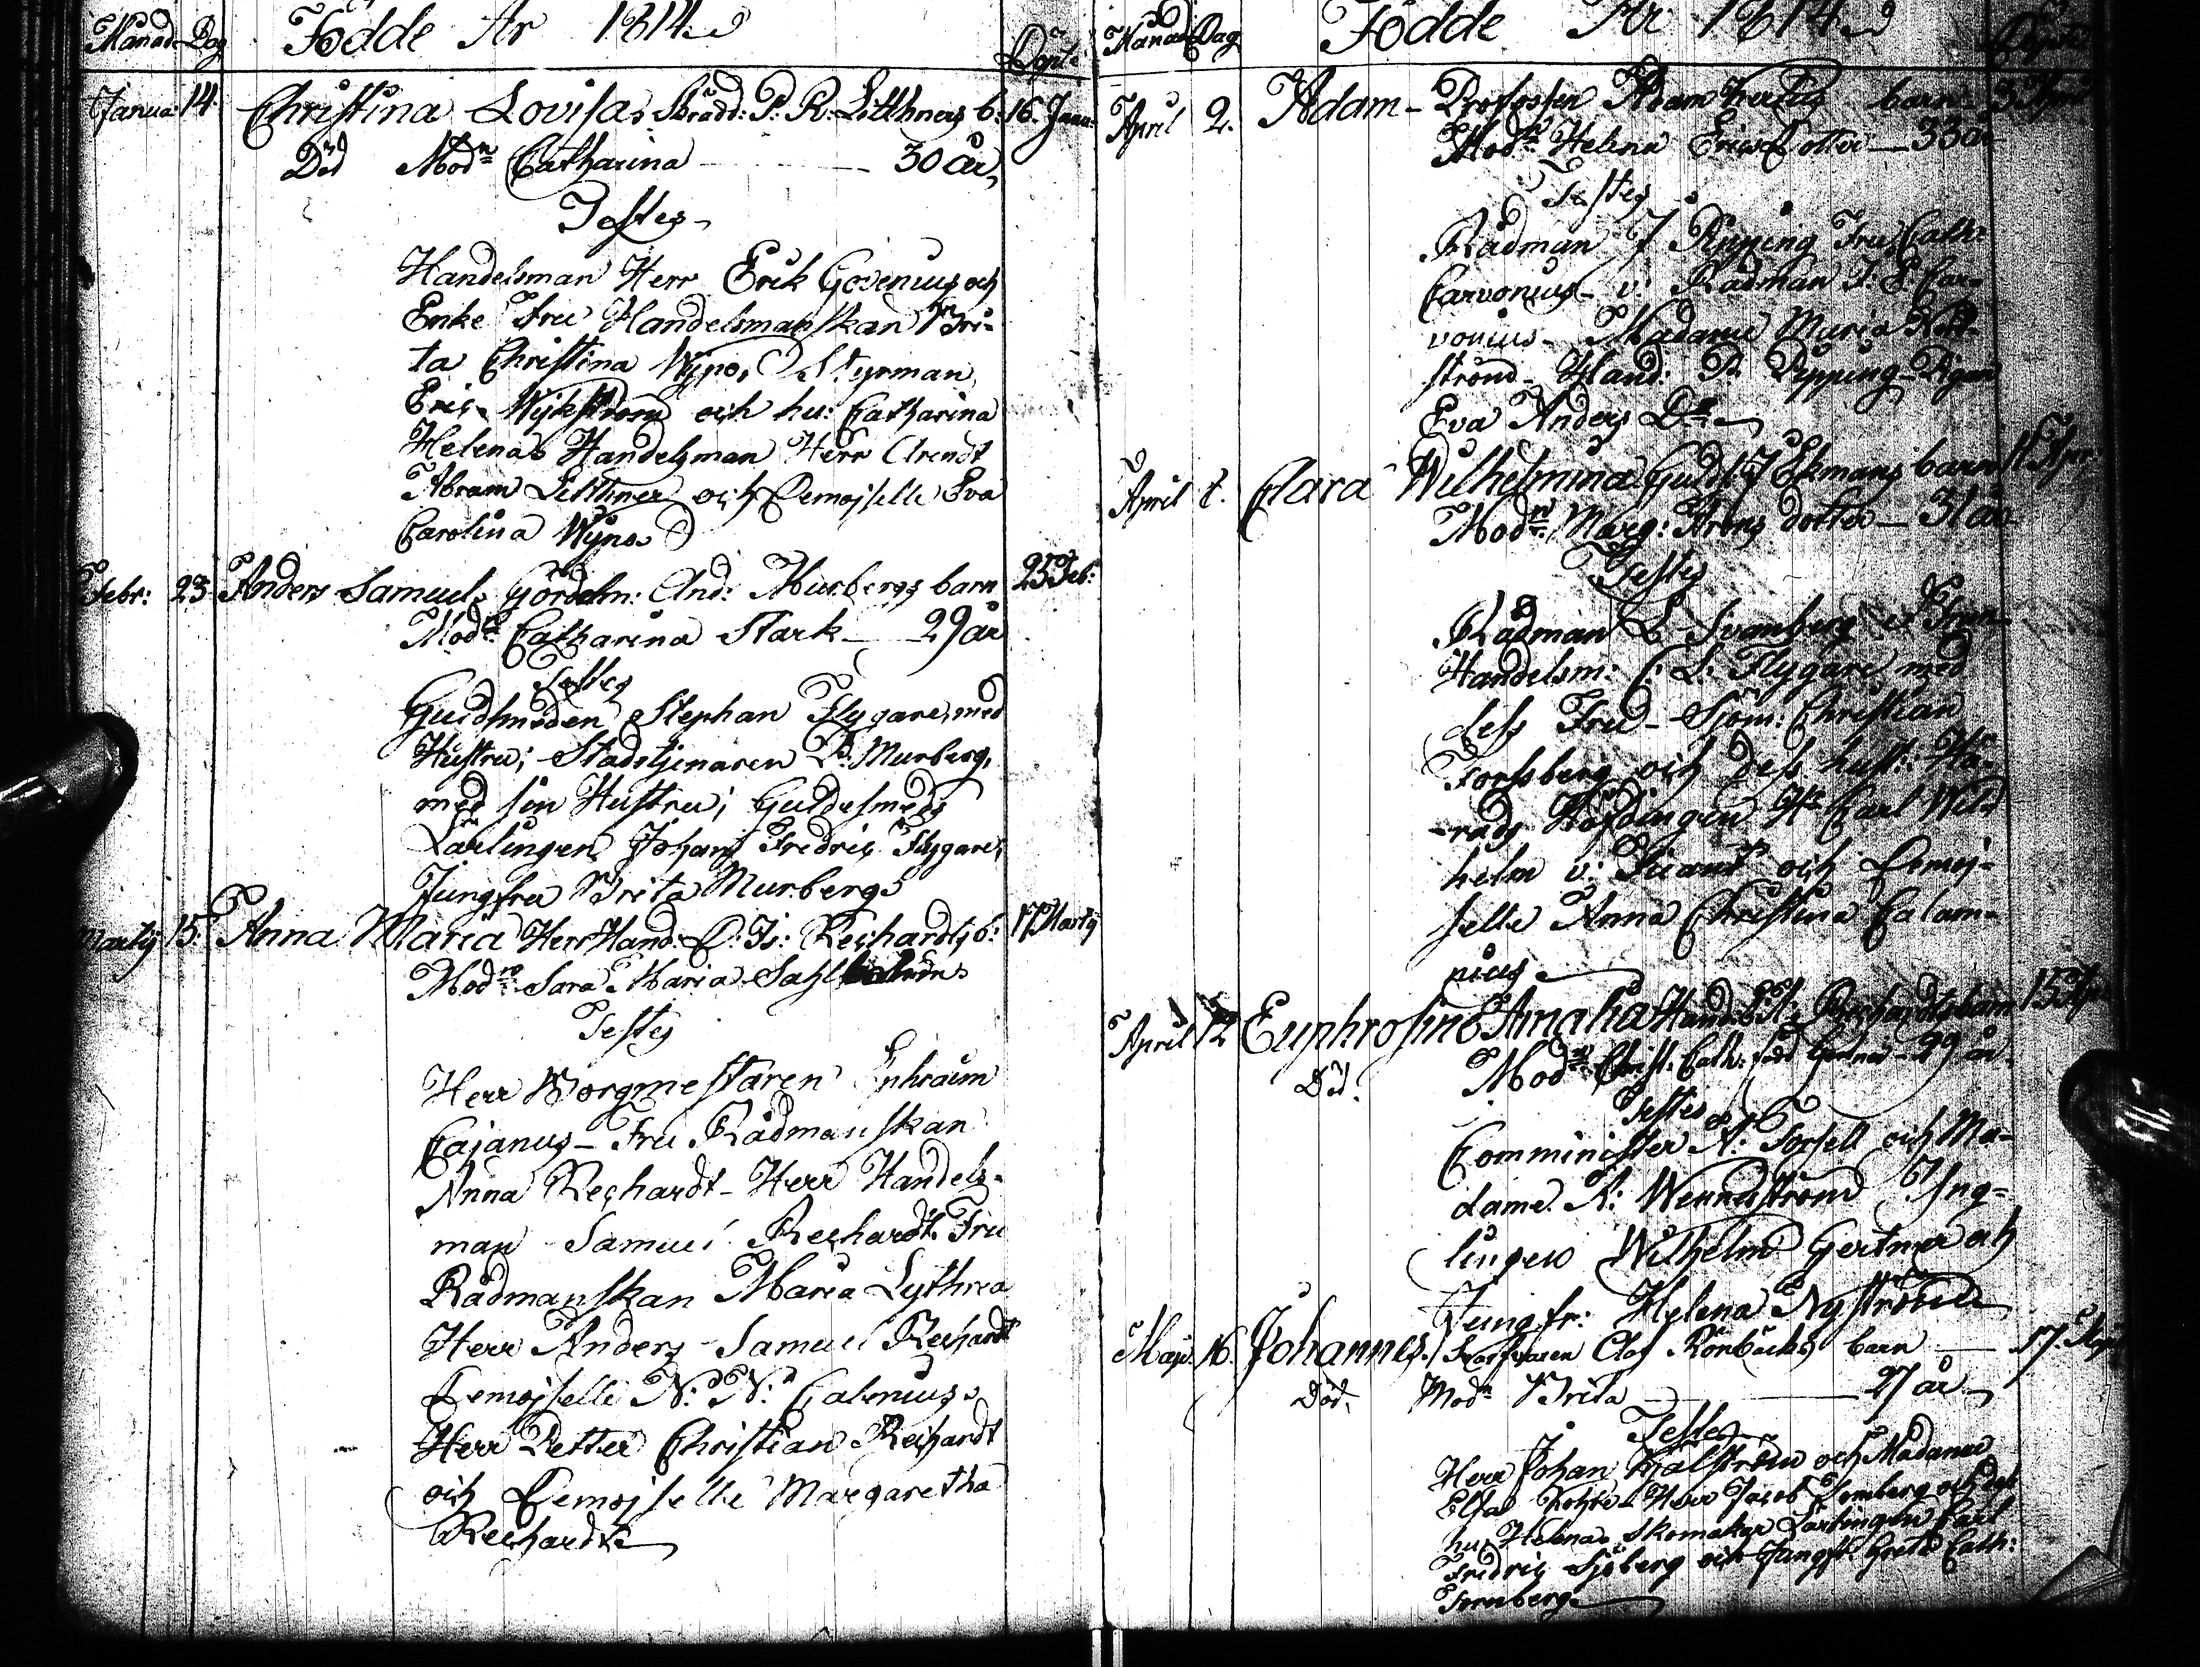 Månad Dag Födde År 1814 Döpte
Janua: 14. Christina Lovisa, Brådd: P: R: Litthners b: 16. Janu:
Död Modn Catharina 30 år,
Testes
Handelsman Herr Erik Govenius och
Enke Fru Handelsmanskan Bri-
ta Christina Wijno, Styrman
Eric Wijkström och hu: Catharina
Helena, Handelsman Herr Arendt
Abram Litthner och Demoiselle Eva
Carolina Wijno
Febr: 23 Anders Samuel, Gördeln: And: Murbergs barn 25 Feb:
Modn Catharina Stark 29 år
Testes
Guldsmeden Stephan Flygare, med
Hustru; Stadstjenaren P: Murberg,
med sin Hustru; Guldsmeds
Lärlingen Johan Fredric Flygare,
Jungfru Brita Murberg
Martij 15. Anna Maria Herr Hand: C: Fr: Reichardts b: 17 Martij
Modn Sara Maria
Testes
Herr Borgmestaren Ephraim
Cajanus Fru Rådmanskan
Anna Reichardt Herr Handels-
man Samuel Reichardt Fru
Rådmanskan Maria Lythrea
Herr Anders Samuel Reichardt
Demoiselle N: N: Calenius
Herr Petter Christian Reichardt
och Demoiselle Margaretha
Reichardt
Månad Dag Födde År 1814
April 2. Adam Profossen Adam barn 3 April
Modn Helena Ericsdotter 33 år
Testes
Rådman J Ripping Fru Cath:
Carvonius v: Rådman J: E: Car-
vonius Madame Maria Nord-
ström Hand: P. Ripping Pigan
Eva Anders Dr
April 8. Clara Wilhelmina Guldsm J Ekmans barn 11 Apr:
Modn Marg: Arons dotter 31 år
Testes
Rådman L Svanberg
Handelsm: C: L: Flygare med
dess Fru Sjöm: Christian
Forssberg och dess hust: Hä-
rads Höfdingen Hr Carl Wil-
helm v: och Demoi-
selle Anna Christina Calam-
nius
April 12 Euphrosine Amalia Hand: Reichardts barn 15 Apr
Död. Modn Christ. Cath: född 29 år
Testes
Comminister A: Forsell och Ma-
dame A: Wennström Yng-
lingen Wilhelm Gertner och
Jungfr: Helena Nyström
Maji. 16. Johannes, Olof Rönbäcks barn 17. Maji
Död. Modn Brita 27 år
Testes
Herr Johan och Madame
Elsa Herr Jacob och dess
hu: Helena, Skomakar Lärlingen Carl
Fridric Sjöberg och Jungfr. Greta Cath: